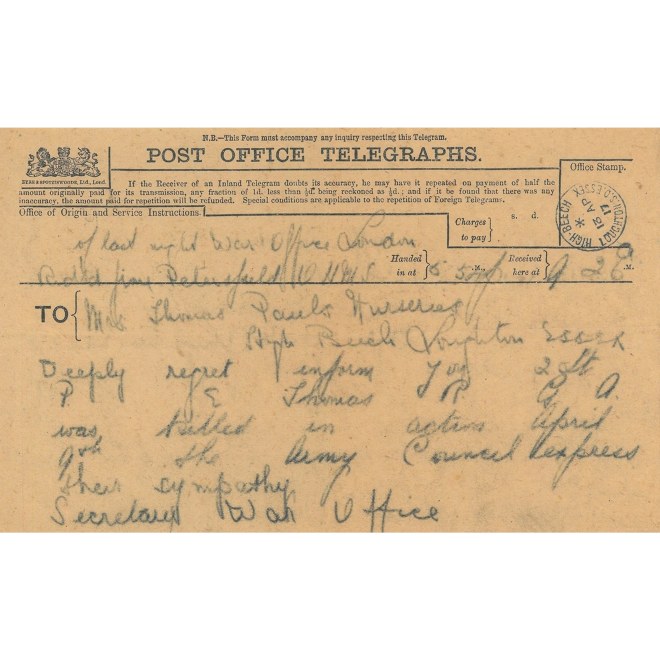 N.B.—This Form must accompany any inquiry respecting this Telegram.
POST OFFICE TELEGRAPHS.
EYRE & SPOTTISWOODE, Ltd., Lond.
If the Receiver of an Inland Telegram doubts its accuracy, he may have it repeated on payment of half the
amount originally paid for its transmission, any fraction of 1d. less than ½d. being reckoned as ½d.; and if it be found that there was any
inaccuracy, the amount paid for repetition will be refunded. Special conditions are applicable to the repetition of Foreign Telegrams.
Office Stamp.
HIGH-BEECH LOUGHTON S.O. ESSEX
13 AP
17
Office of Origin and Service Instructions.
Charges to pay
s. d.
of last night War Office London
Handed in at
5 5
.M.,
Received here at
9 2
.M.
Petersfield
TO
Mrs Thomas Pauls Nurseries
High Beech Loughton Essex
Deeply regret inform you 2 Lt
P. E Thomas R G A.
was killed in action April
9th the Army Council express
their sympathy
Secretary War Office